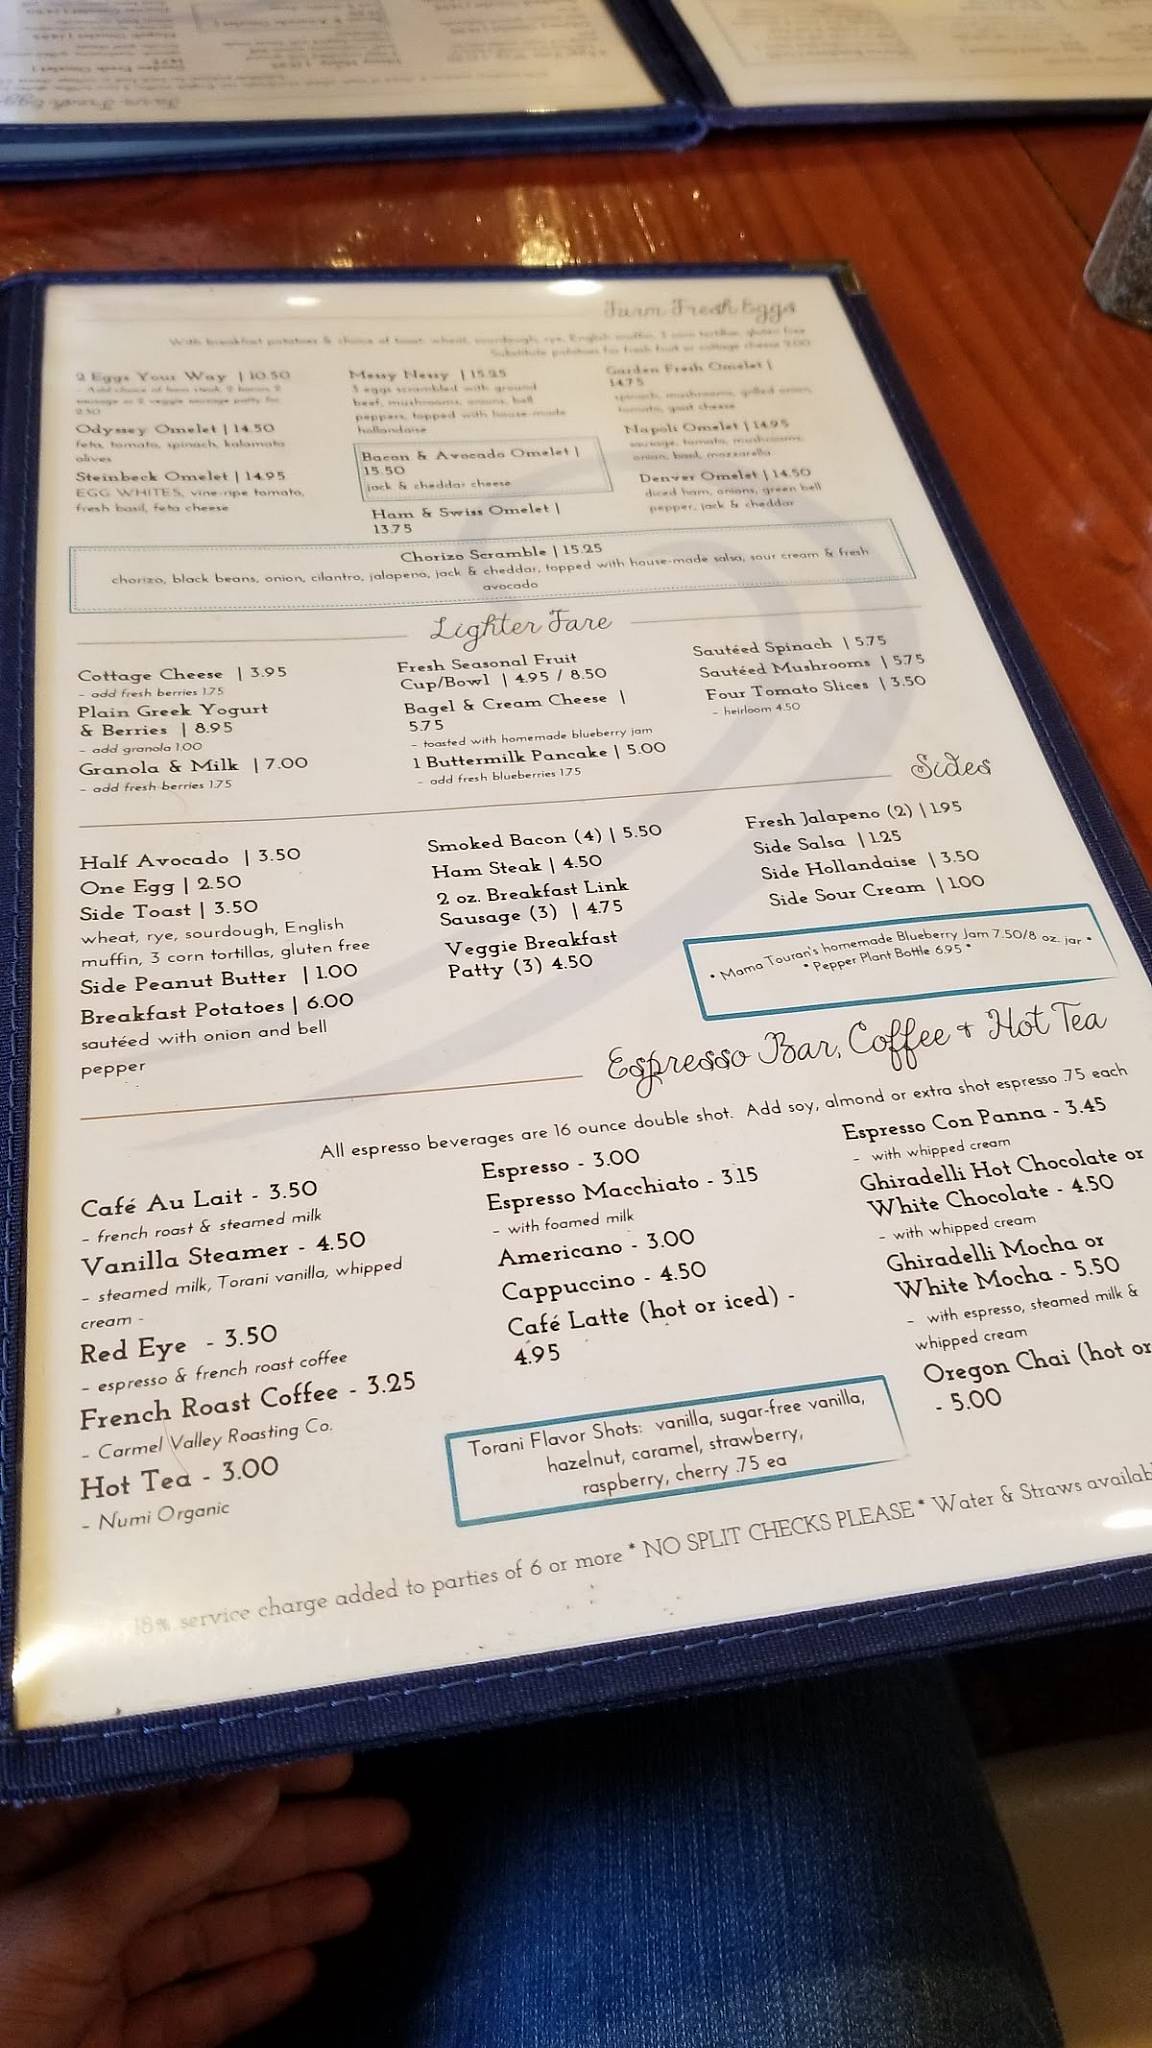 Farm Fresh Eggs
With breakfast potatoes & choice of toast: wheat, sourdough, rye, English muffin, 3 corn tortillas, gluten free
Substitute potatoes for fresh fruit or cottage cheese 2.00
2 Eggs Your Way | 10.50
Odyssey Omelet | 14.50
feta, tomato, spinach, kalamata
olives
Steinbeck Omelet | 14.95
EGG WHITES, vine-ripe tomato,
fresh basil, feta cheese
Messy Nessy | 15.25
3 eggs scrambled with ground
beef, mushrooms, onions, bell
peppers, topped with house-made
hollandaise
Bacon & Avocado Omelet |
15.50
jack & cheddar cheese
Ham & Swiss Omelet |
13.75
Garden Fresh Omelet |
14.75
spinach, mushrooms, grilled onion,
tomato, goat cheese
Napoli Omelet | 14.95
sausage, tomato, mushrooms,
onion, basil, mozzarella
Denver Omelet | 14.50
diced ham, onions, green bell
pepper, jack & cheddar
Chorizo Scramble | 15.25
chorizo, black beans, onion, cilantro, jalapeno, jack & cheddar, topped with house-made salsa, sour cream & fresh
avocado
Lighter Fare
Cottage Cheese | 3.95
- add fresh berries 1.75
Plain Greek Yogurt
& Berries | 8.95
- add granola 1.00
Granola & Milk | 7.00
- add fresh berries 1.75
Fresh Seasonal Fruit
Cup/Bowl | 4.95 / 8.50
Bagel & Cream Cheese |
5.75
- toasted with homemade blueberry jam
1 Buttermilk Pancake | 5.00
- add fresh blueberries 1.75
Sautéed Spinach | 5.75
Sautéed Mushrooms | 5.75
Four Tomato Slices | 3.50
- heirloom 4.50
Sides
Half Avocado | 3.50
One Egg | 2.50
Side Toast | 3.50
wheat, rye, sourdough, English
muffin, 3 corn tortillas, gluten free
Side Peanut Butter | 1.00
Breakfast Potatoes | 6.00
sautéed with onion and bell
pepper
Smoked Bacon (4) | 5.50
Ham Steak | 4.50
2 oz. Breakfast Link
Sausage (3) | 4.75
Veggie Breakfast
Patty (3) 4.50
Fresh Jalapeno (2) | 1.95
Side Salsa | 1.25
Side Hollandaise | 3.50
Side Sour Cream | 1.00
* Mama Touran's homemade Blueberry Jam 7.50/8 oz. jar *
* Pepper Plant Bottle 6.95 *
Espresso Bar, Coffee & Hot Tea
All espresso beverages are 16 ounce double shot. Add soy, almond or extra shot espresso .75 each
Café Au Lait - 3.50
- french roast & steamed milk
Vanilla Steamer - 4.50
- steamed milk, Torani vanilla, whipped
cream -
Red Eye - 3.50
- espresso & french roast coffee
French Roast Coffee - 3.25
- Carmel Valley Roasting Co.
Hot Tea - 3.00
- Numi Organic
Espresso - 3.00
Espresso Macchiato - 3.15
- with foamed milk
Americano - 3.00
Cappuccino - 4.50
Café Latte (hot or iced) -
4.95
Espresso Con Panna - 3.45
- with whipped cream
Ghiradelli Hot Chocolate or
White Chocolate - 4.50
- with whipped cream
Ghiradelli Mocha or
White Mocha - 5.50
- with espresso, steamed milk &
whipped cream
Oregon Chai (hot or
- 5.00
Torani Flavor Shots: vanilla, sugar-free vanilla,
hazelnut, caramel, strawberry,
raspberry, cherry .75 ea
18% service charge added to parties of 6 or more * NO SPLIT CHECKS PLEASE * Water & Straws availab